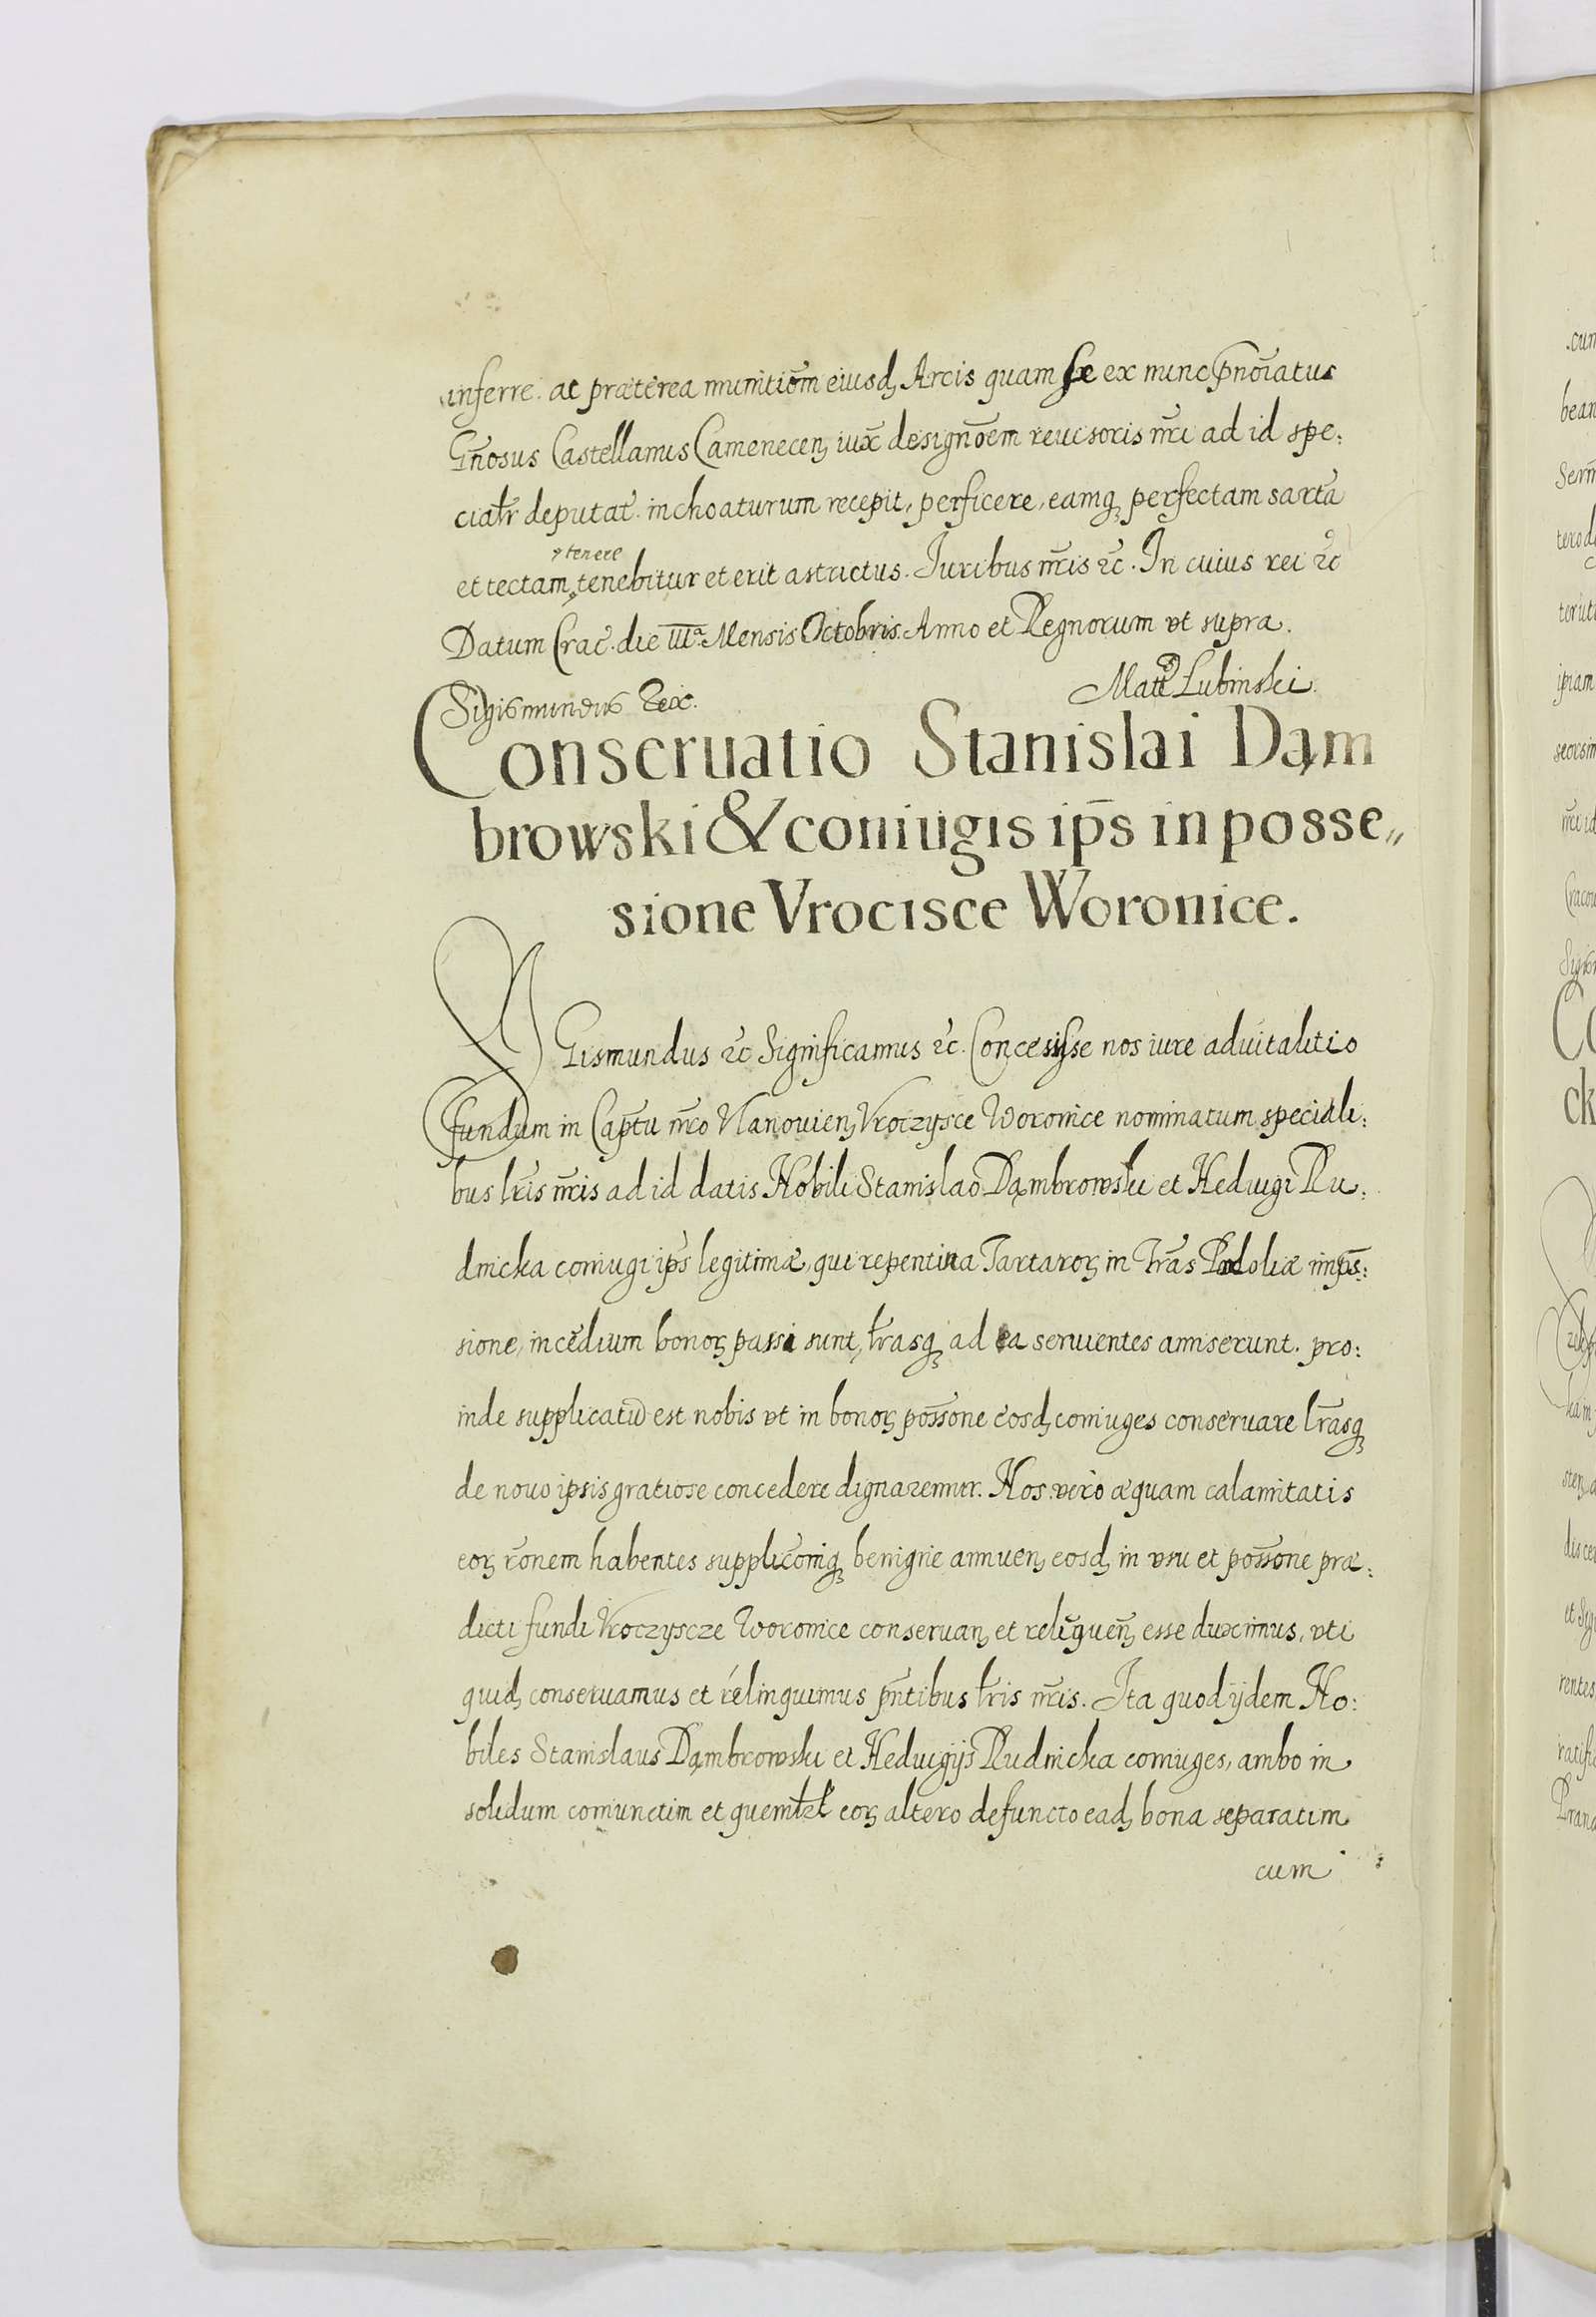 inferre. ac præterea munitiõm eiusd, Arcis quam se ex nunc p̃nõiatus
Gñosus Castellanus Camenecen, iux̃ designõem reuisoris nr̃i ad id spe:
cialr̃ deputat. inchoaturum recepit, perficere, eamq, perfectam sarta
tenere
et tectam, tenebitur et erit astrictus. Juribus nr̃is ꝛc̃. In cuius rei ꝛc̃
Datum Crac̃. die IIIa. Mensis Octobris. Anno et Regnorum vt supra.
Sigismundus Rex. Matt Lubinski.
Conseruatio Stanislai Dam
browski & coniugis ip̃s in posse„
sione Vrocisce Woronice.
SIGismundus ꝛc̃ Significamus ꝛc̃. Concesisse nos iure aduitalitio
fundum in Cap̃tu nr̃o Vlanouien, Vroczysce Woronice nominatum speciali:
bus lr̃is nr̃is ad id datis Nobili Stanislao Dąmbrowski et Heduigi Ru:
dnicka coniugi ip̃s legitimæ, qui repentina Tartaroꝝ in Tr̃as Podoliæ imp̃s:
sione, incẽdium bonoꝝ passi sunt, lr̃asq, ad ea seruientes amiserunt. pro:
inde supplicatũ est nobis vt in bonoꝝ poss̃one eosd, coniuges conseruare lr̃asq,
de nouo ipsis gratiose concedere dignaremur. Nos vero æquam calamitatis
eoꝝ rõnem habentes supplicõniq, benigne annuen, eosd, in vsu et poss̃one præ:
dicti fundi Vroczyscze Woronice conseruan, et relĩquen̄, esse duximus, vti
quid, conseruamus et relinquimus pñtibus lr̃is nr̃is. Ita quod ijdem No:
biles Stanislaus Dąmbrowski et Heduigijs Rudnicka coniuges, ambo in
solidum coniunctim et quemlꝫt eoꝝ altero defuncto ead, bona separatim
cum